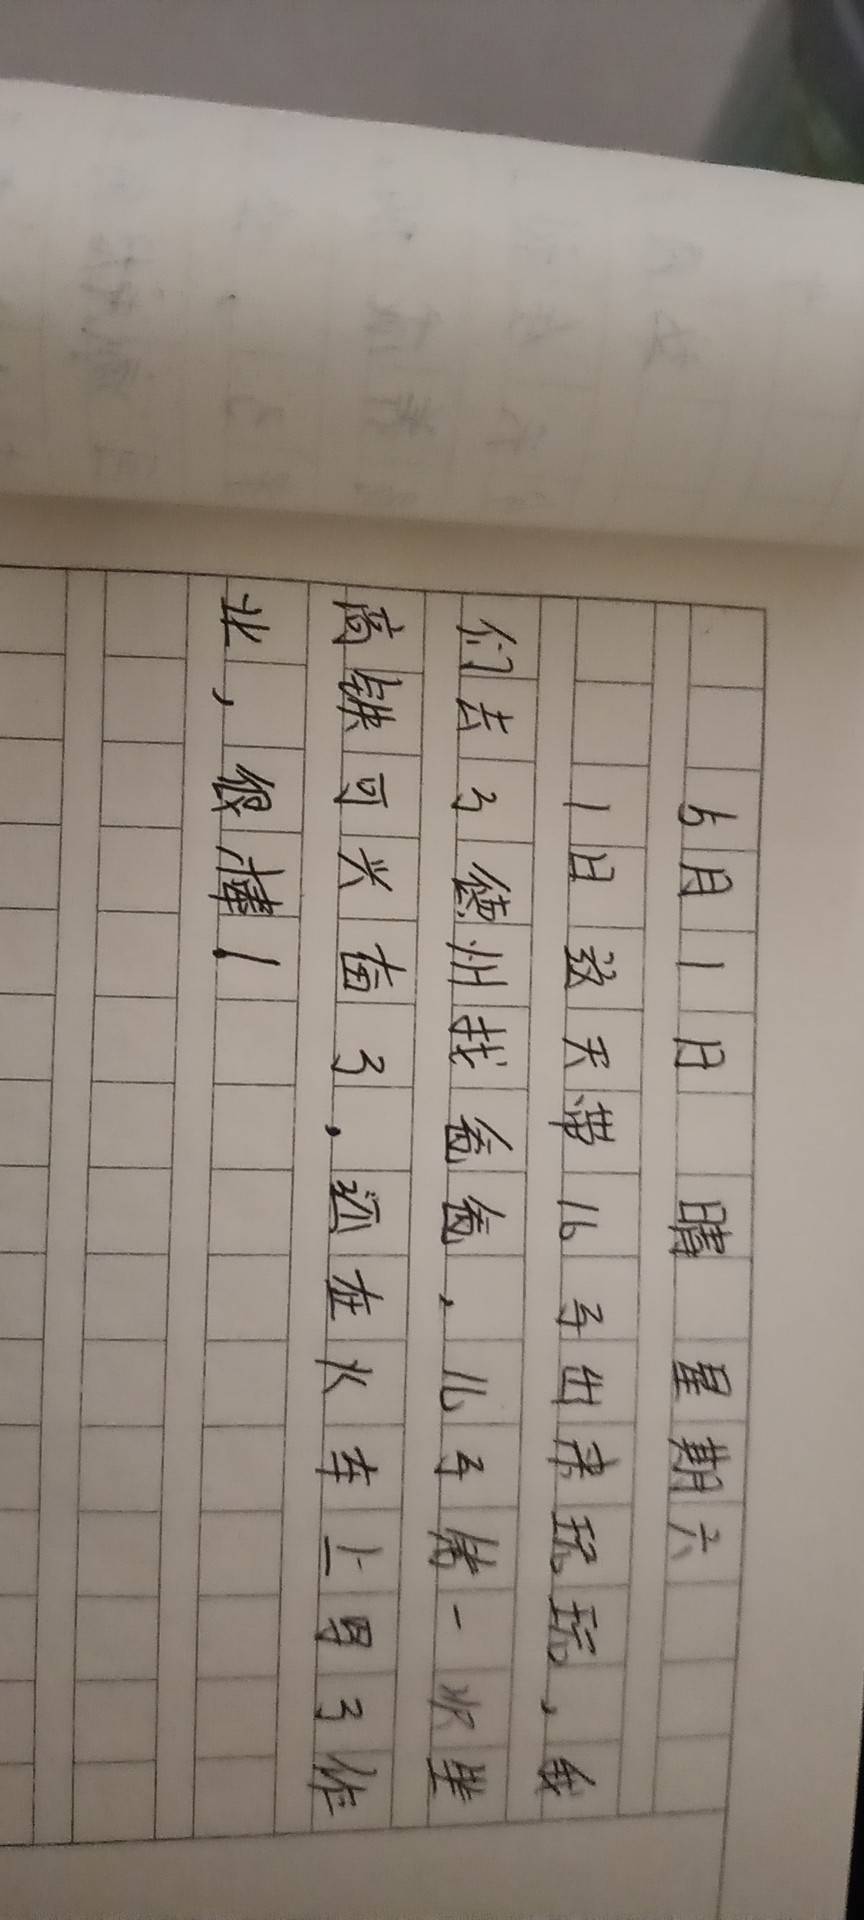 5月1日 晴 星期六
1日这天带儿子出来玩玩,我
们去了德州找爸爸.儿子第一次坐
高铁可兴奋了.还在火车上写了作
业,很棒!